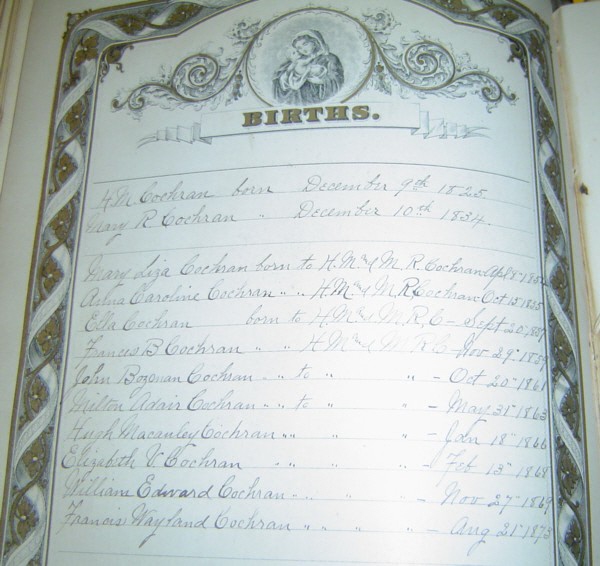 BIRTHS.
H.M. Cochran born December 9th 1825
Mary R Cochran " December 10th 1834.
Mary Liza Cochran born to H.M. & M. R. Cochran Apl 8"
Caroline Cochran " " H.M. & M R Cochran Oct 15" 1855
Ella Cochran born to H.M. & M. R, C - Sept 20, 1857
Frances B Cochran " " H.M. & M R C - Nov 29" 1859
John Bozeman Cochran - " to " " - Oct 20" 1861
Milton Adair Cochran - " to " " - May 31" 1863
Hugh Macauley Cochran " " " " - Jan 18" 1866
Elizabeth V Cochran - " " " " - Feb 13" 1868
William Edward Cochran - " " " - Nov 27" 1869
Francis Wayland Cochran " " " " - Aug 21" 1873